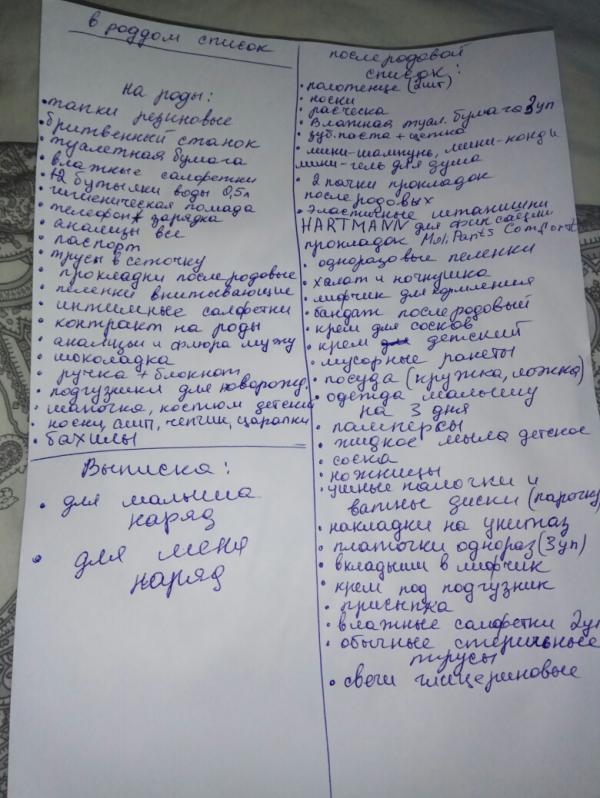 в роддом список
на роды:
• тапки резиновые
• бритвенный станок
• туалетная бумага
• влажные салфетки
• +2 бутылки воды 0,5л
• гигиеническая помада
• телефон + зарядка
• анализы все
• паспорт
• трусы в сеточку
• прокладки послеродовые
• пеленки впитывающие
• интимные салфетки
• контракт на роды
• анализы и флюра мужу
• шоколадка
• ручка + блокнот
• подгузники для новорожд.
• шапочка, костюм детский
• носки, слип, чепчик, царапки
• бахилы
Выписка:
• для малыша
наряд
• для меня
наряд
послеродовой
список:
• полотенце (2шт)
• носки
• расческа
• Влажная туал. бумага 3уп
• зуб. паста + щетка
• мини-шампунь, мини-конд и
мини-гель для душа
• 2 пачки прокладок
послеродовых
• эластичные штанишки
HARTMANN для фиксации
прокладок MoliPants Comfort
• одноразовые пеленки
• халат и ночнушка
• лифчик для кормления
• бандаж послеродовый
• крем для сосков
• крем детский
• мусорные пакеты
• посуда (кружка, ложка)
• одежда малышу
на 3 дня
• памперсы
• жидкое мыла детское
• соска
• ножницы
• ушные палочки и
ватные диски (парочку)
• накладки на унитаз
• платочки однораз (3уп)
• вкладыши в лифчик
• крем под подгузник
• присыпка
• влажные салфетки 2уп
• обычные стерильные
трусы
• свечи глицериновые